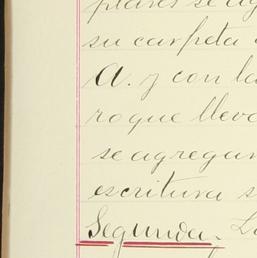 plares se ag
su carpeta
A. y con la
roque lleva
se agregan
escritura s
Segunda. L